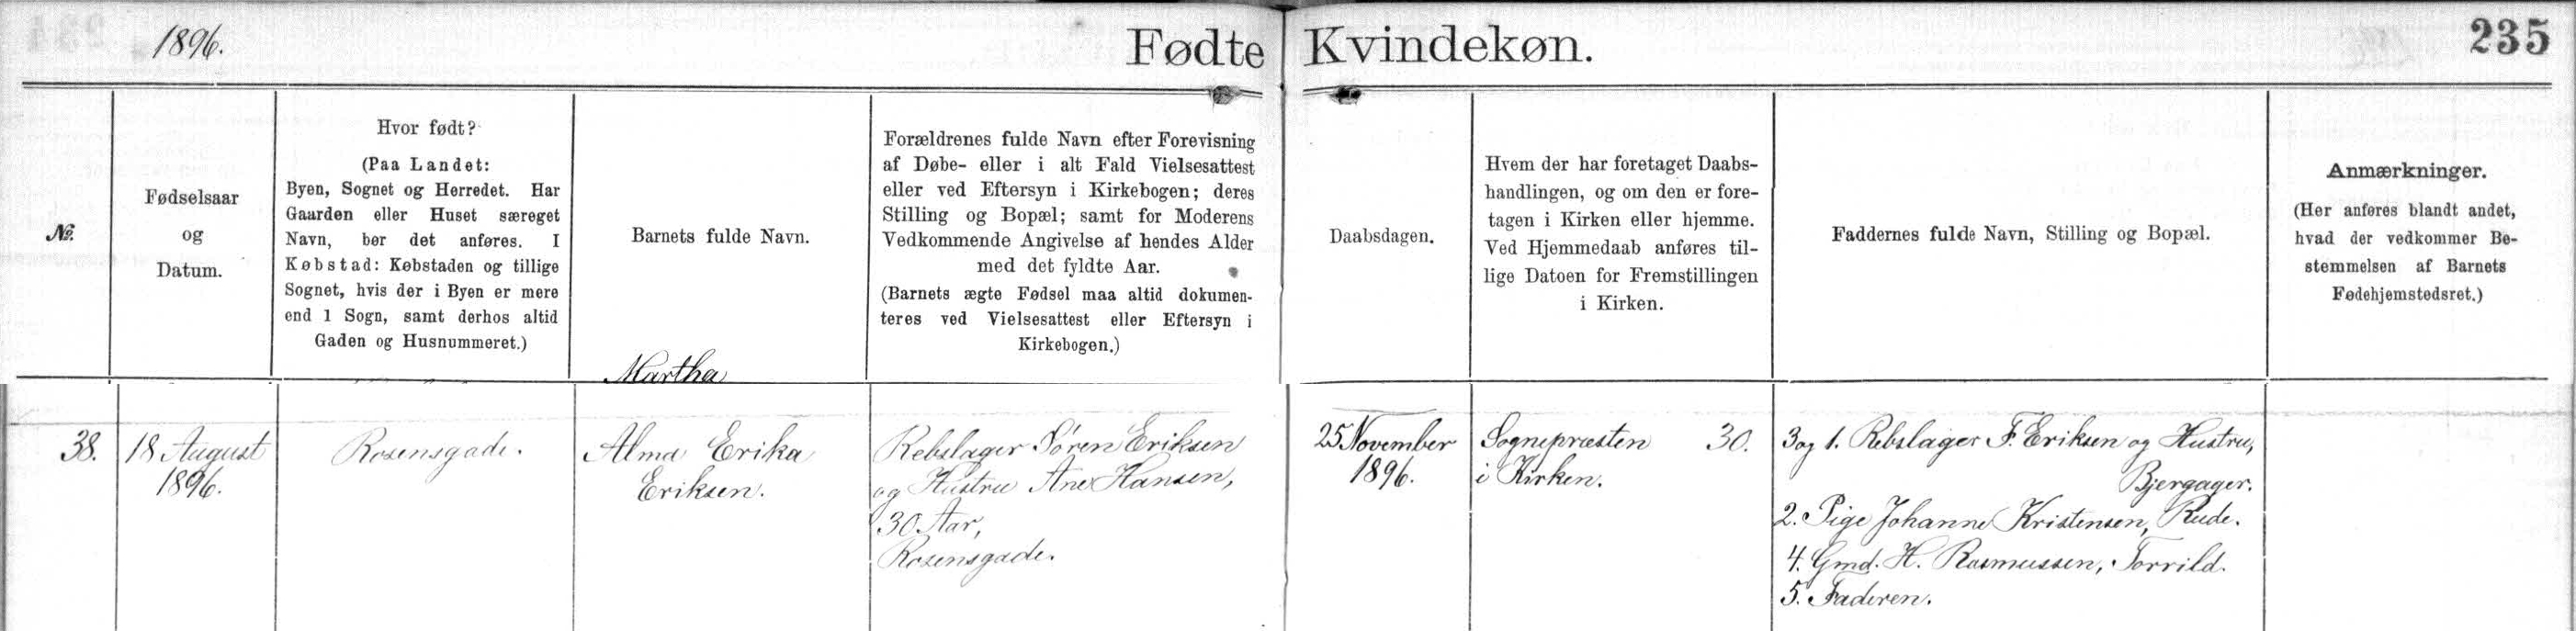 1896.
Fødte Kvindekøn.
235
№.
Fødselsaar
og
Datum.
Hvor født?
(Paa Landet:
Byen, Sognet og Herredet. Har
Gaarden eller Huset særeget
Navn, bør det anføres. I
Købstad: Købstaden og tillige
Sognet, hvis der i Byen er mere
end 1 Sogn, samt derhos altid
Gaden og Husnummeret.)
Barnets fulde Navn.
Forældrenes fulde Navn efter Forevisning
af Døbe- eller i alt Fald Vielsesattest
eller ved Eftersyn i Kirkebogen; deres
Stilling og Bopæl; samt for Moderens
Vedkommende Angivelse af hendes Alder
med det fyldte Aar.
(Barnets ægte Fødsel maa altid dokumen-
teres ved Vielsesattest eller Eftersyn i
Kirkebogen.)
Daabsdagen.
Hvem der har foretaget Daabs-
handlingen, og om den er fore-
tagen i Kirken eller hjemme.
Ved Hjemmedaab anføres til-
lige Datoen for Fremstillingen
i Kirken.
Faddernes fulde Navn, Stilling og Bopæl.
Anmærkninger.
(Her anføres blandt andet,
hvad der vedkommer Be-
stemmelsen af Barnets
Fødehjemstedsret.)
Martha
38.
18 August
1896.
Rosensgade.
Alma Erika
Eriksen.
Rebslager Søren Eriksen
og Hustru Ane Hansen,
30 Aar,
Rosensgade.
25 November
1896.
Sognepræsten
i Kirken.
30.
3 og 1. Rebslager F. Eriksen og Hustru,
Bjergager.
2. Pige Johanne Kristensen, Rude.
4. Gmd. H. Rasmussen, Torrild.
5. Faderen.